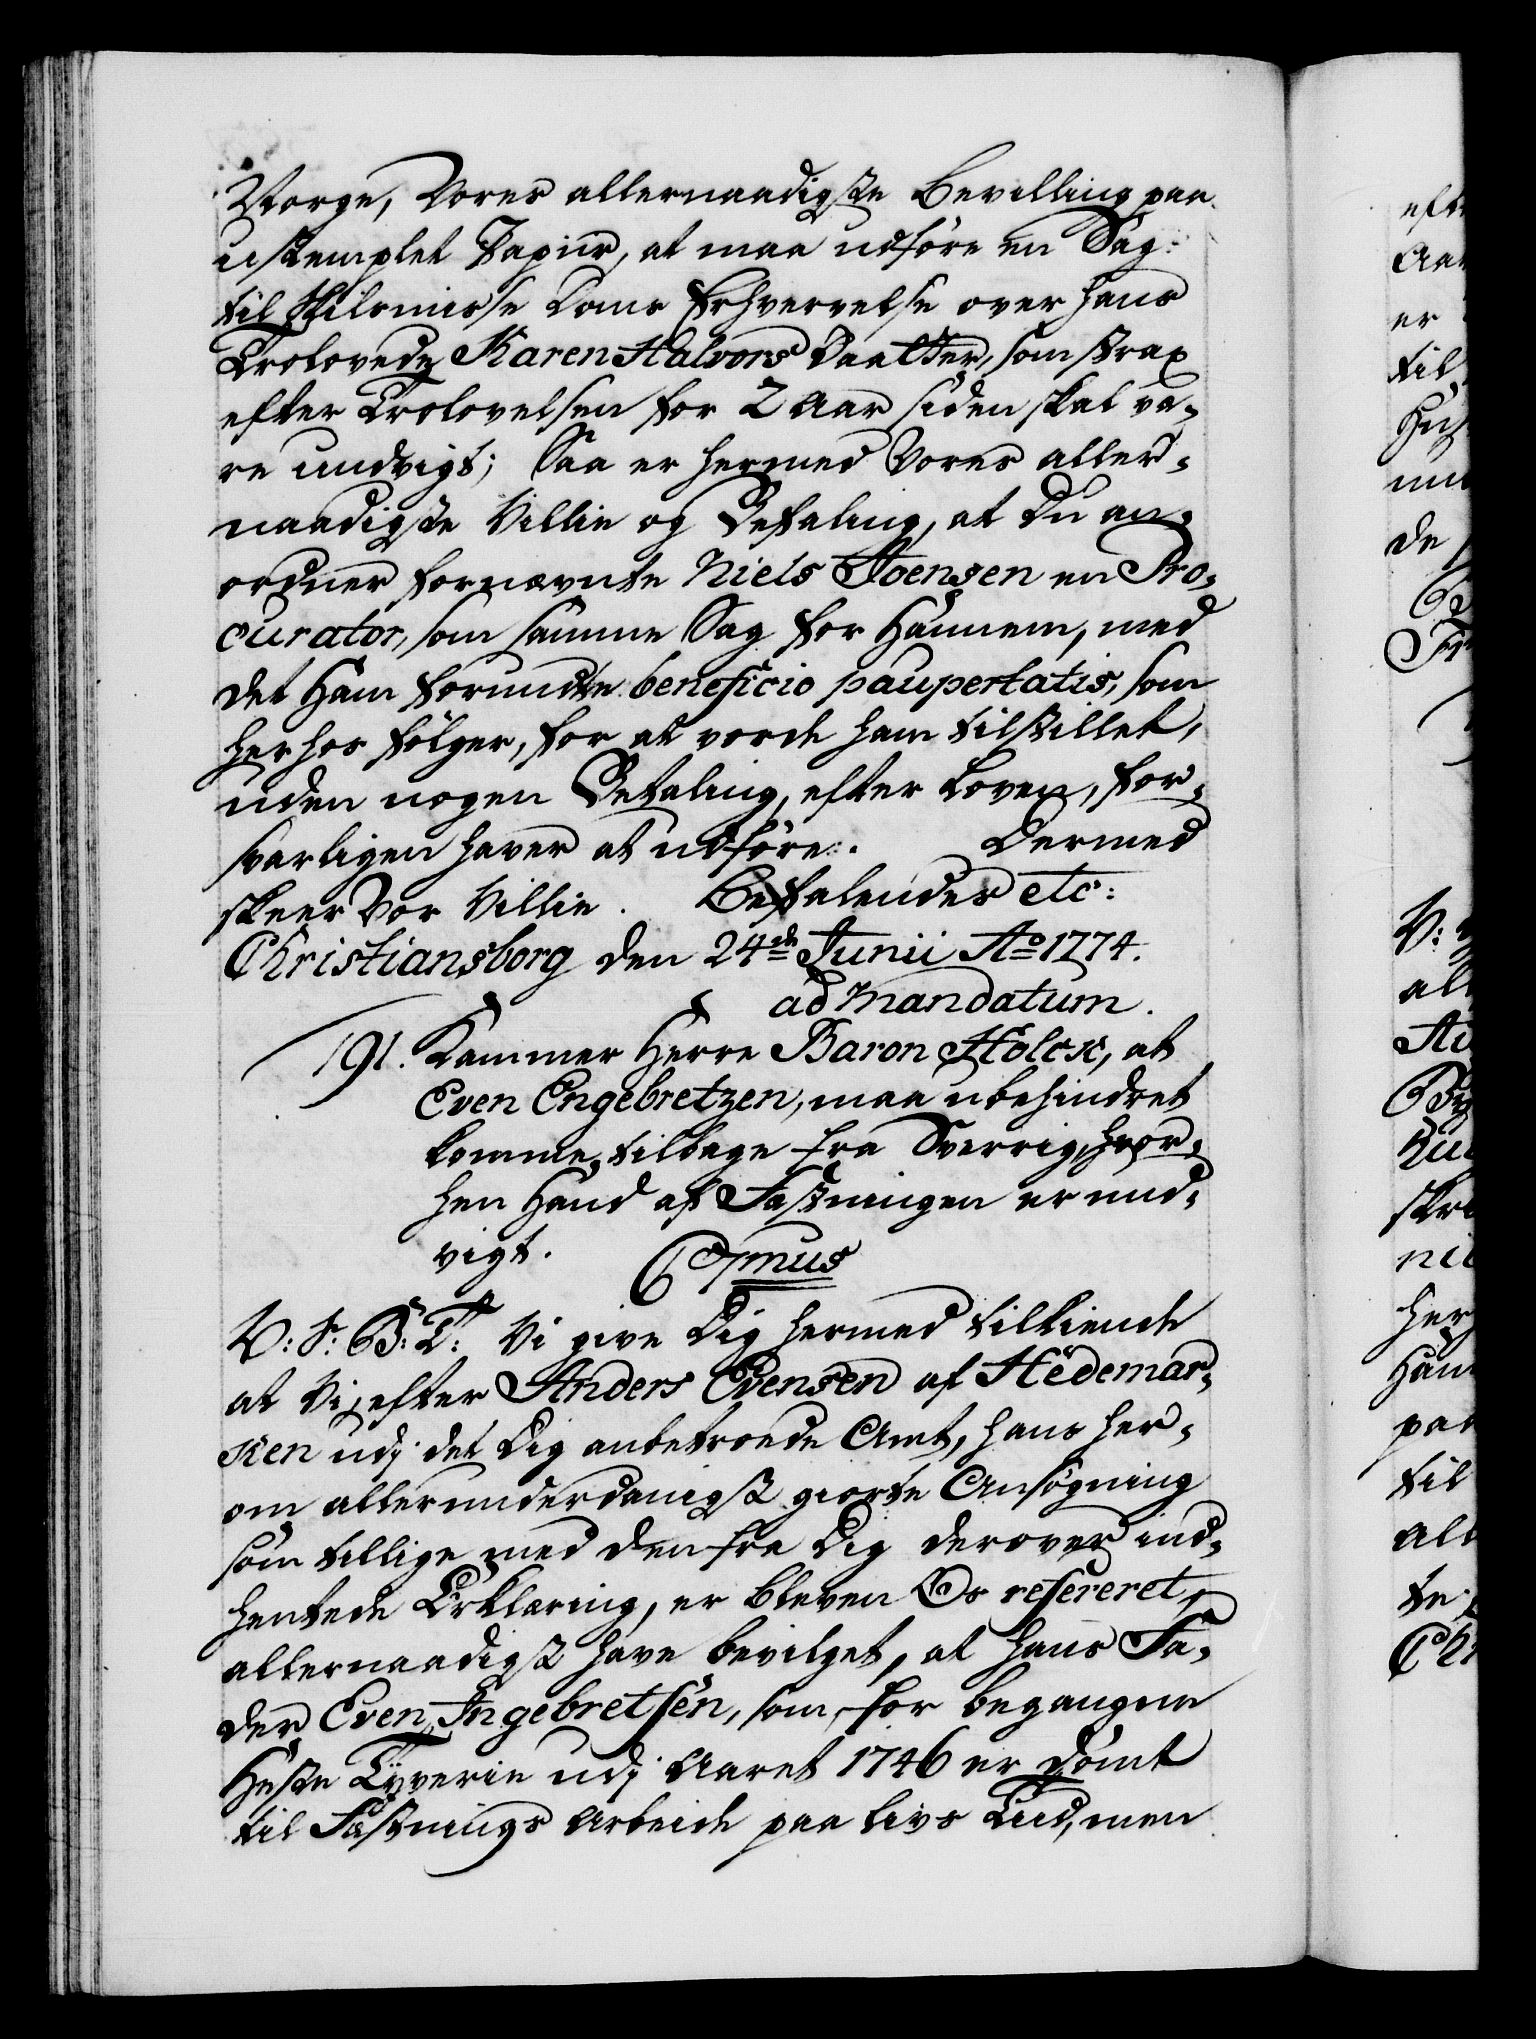 Norge, Vores allernaadigste Bevilling paa
ustemplet Papiir, at maa udföre en Sag
til Skilsmisse Doms Erhvervelse over hans
Trolovede Karen Halvors Daatter, som strax
efter Trolovelsen for 2 Aar siden skal væ-
re undvigt; Saa er hermed Vores aller-
naadigste Villie og Befaling, at Du an-
ordner fornævnte Niels Joensen en Pro-
curator, som samme Sag for Hannem, med
det Ham forundte beneficio paupertatis, som
herhos fölger, for at vorde ham tilstillet,
uden nogen Betaling, efter Loven, for-
svarligen haver at udföre. Dermed
skeer Vor Villie. Befalendes etc:
Christiansborg den 24de Junii Ao 1774.
ad Mandatum.
191. Kammer Herre Baron Holck, at
Even Engebretzen, maa ubehindret
komme tilbage fra Sverrig, hvor-
hen Hand af Fæstningen er und-
vigt.
V: S: B: T: Vi give Dig hermed tilkiende
at Vi, efter Anders Evensen af Hedemar-
ken udj det Dig anbetroede Amt, hans her-
om allerunderdanigst giorte Ansøgning
som tillige med den fra Dig derover ind-
hentede Erklæring, er bleven Os refereret,
allernaadigst have bevilget, at hans Fa-
der Even Ingebretsen, som for begangne
Heste Tyverie udj Aaret 1746 er dömt
til Fæstnings Arbeide paa Livs Tiid, men